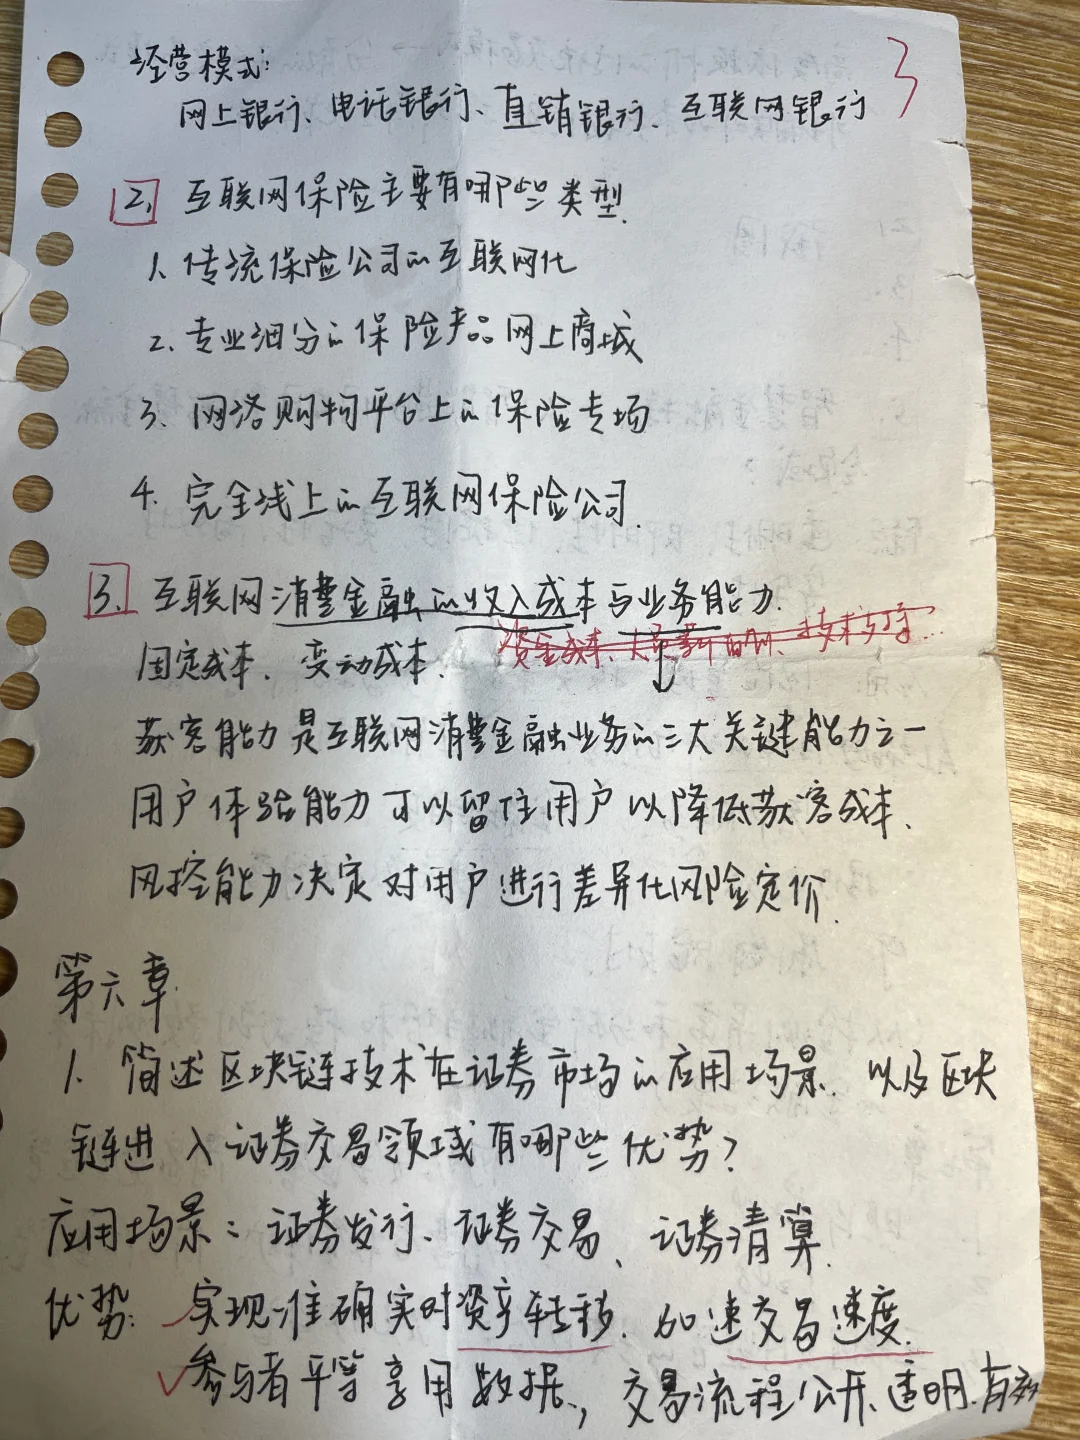 3
经营模式:
网上银行、电话银行、直销银行、互联网银行
2, 互联网保险主要有哪些类型.
1、传统保险公司的互联网化
2、专业细分的保险产品网上商城
3、网洛购物平台上的保险专场
4. 完全线上的互联网保险公司.
3. 互联网消费金融的收入成本与业务能力.
固定成本、变动成本. 资金成本、
获客能力是互联网消费金融业务的三大关键能力之一
用户体验能力可以留住用户以降低获客成本、
风控能力决定对用户进行差异化风险定价.
第六章
1. 简述区块链技术在证券市场的应用场景. 以及区块
链进入证券交易领域有哪些优势?
应用场景: 证券发行、证券交易、证券清算.
优势: 实现准确实时资产转移. 加速交易速度.
参与者平等享用数据, 交易流程公开、透明.有效